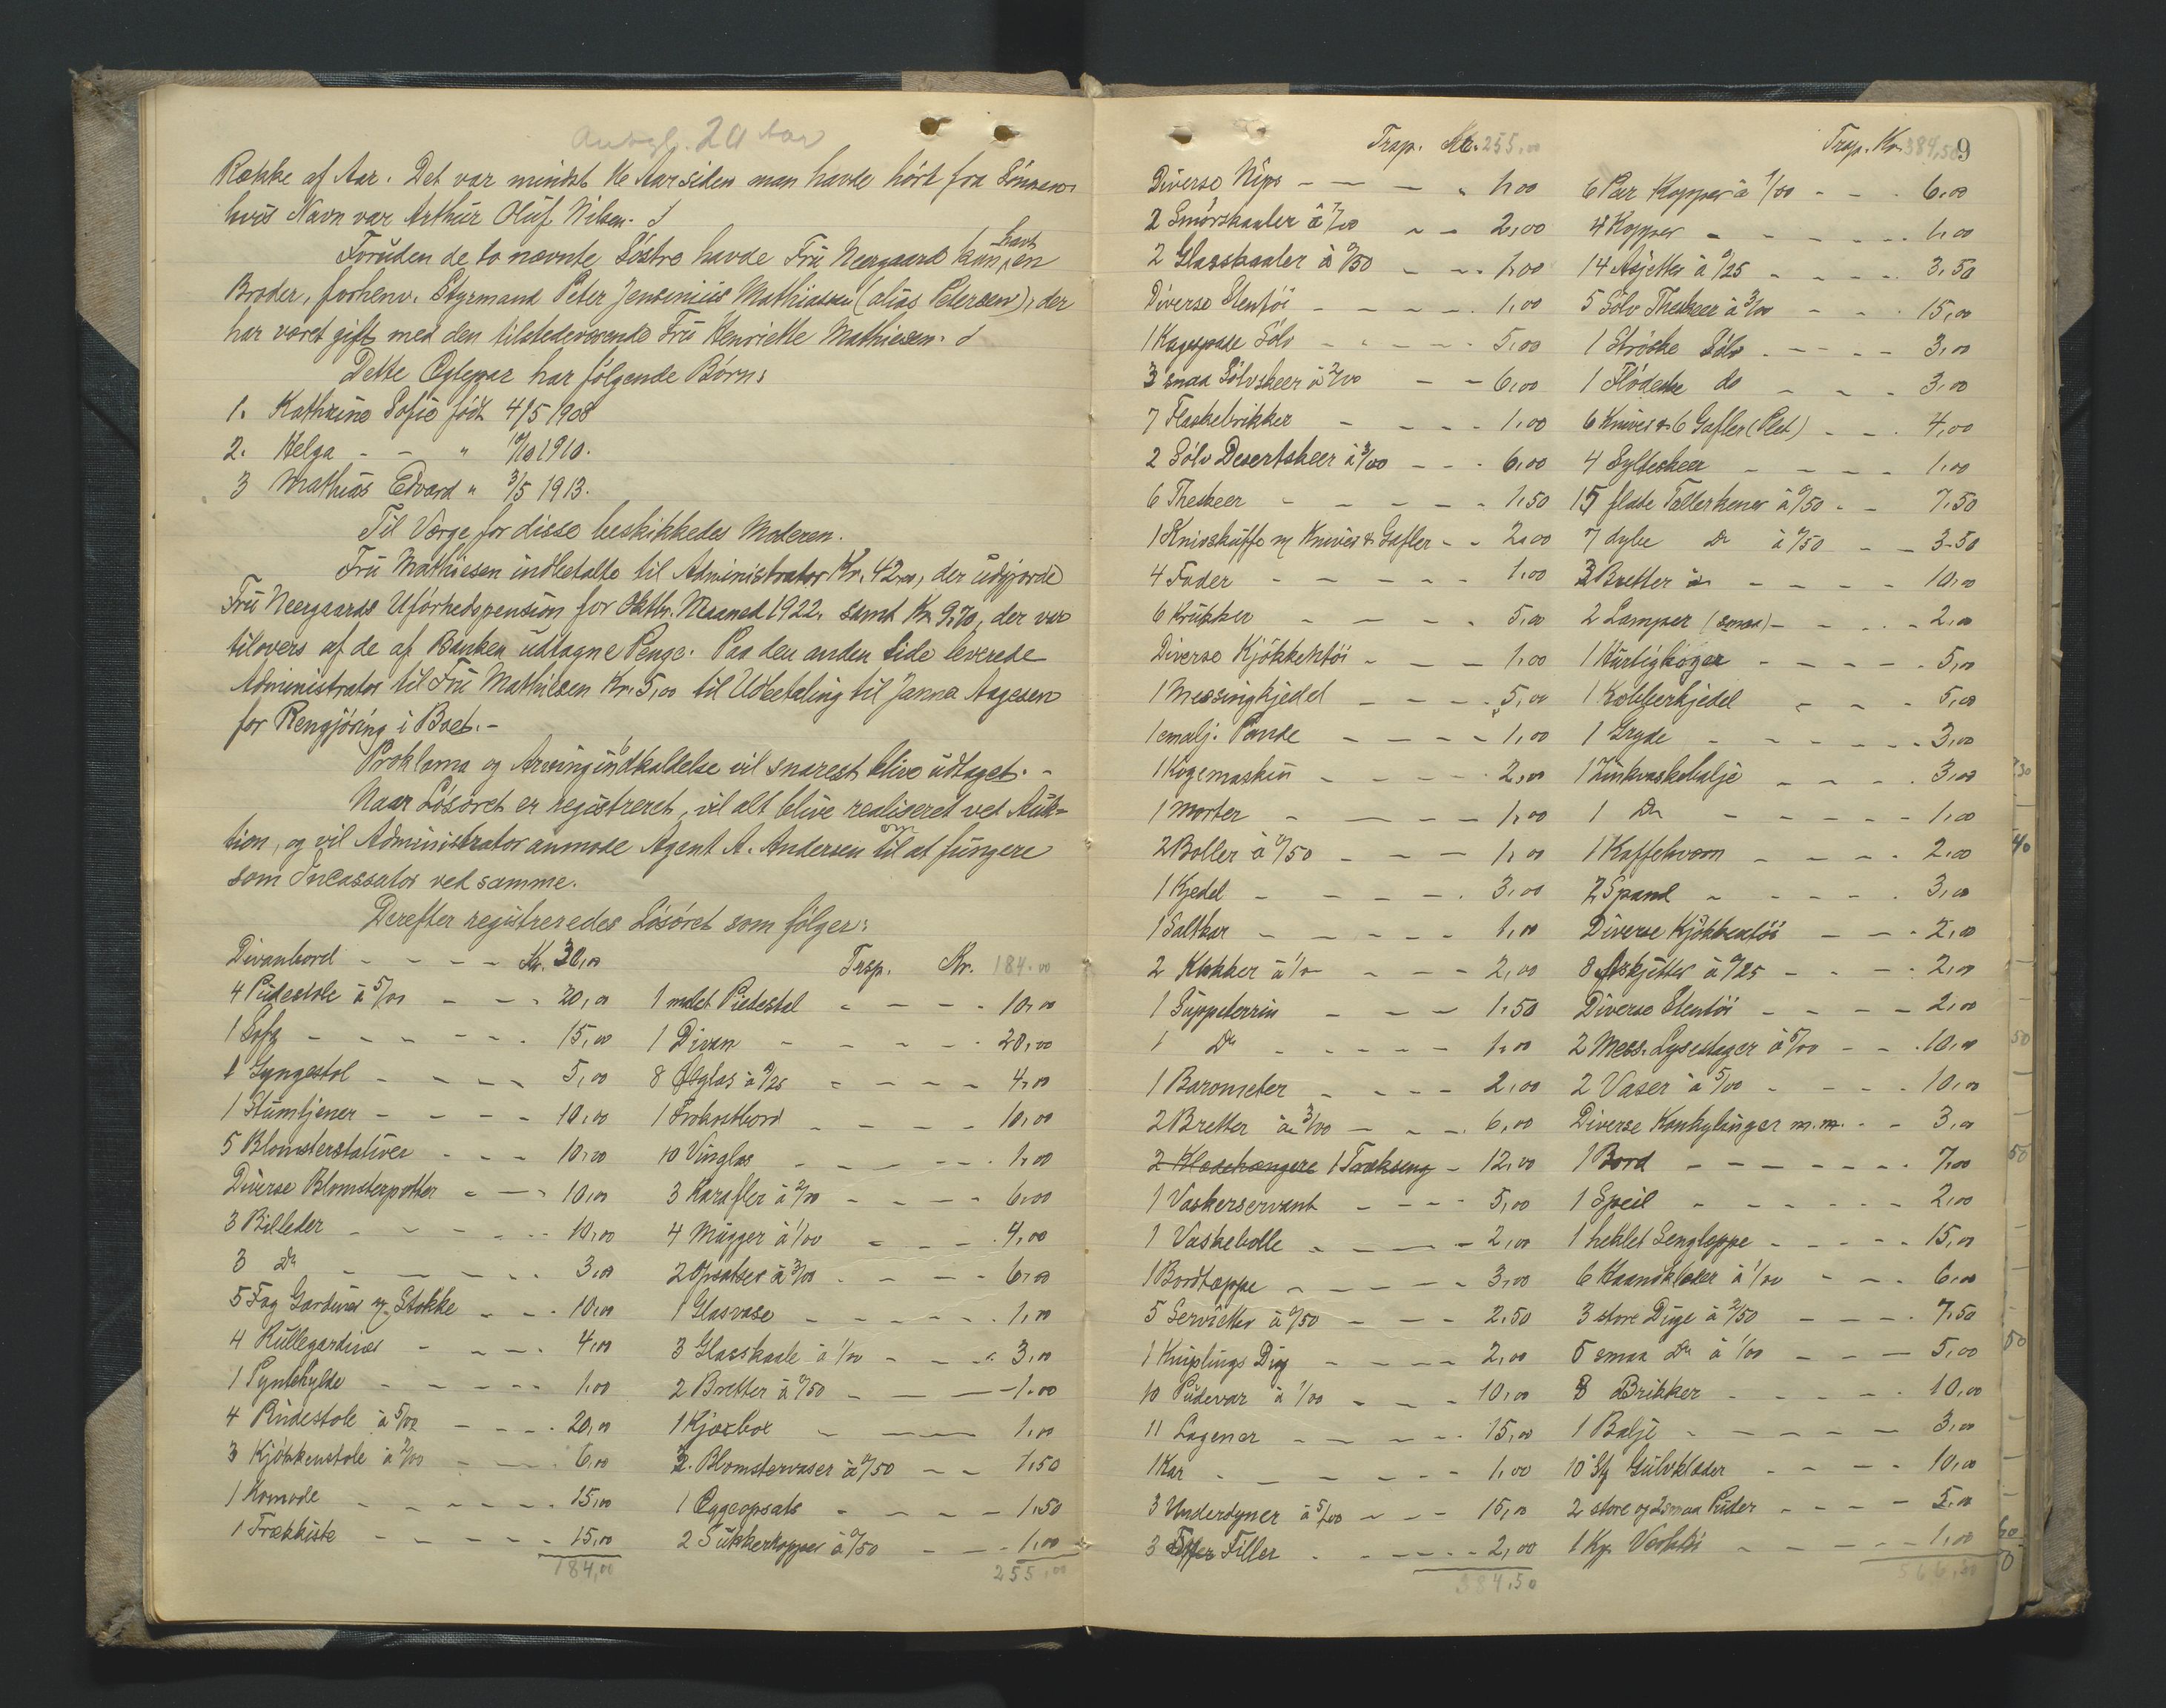 Antagl. 20 Aar
Række af Aar. Det var mindst 16 Aar siden man havde hört fra Sönnen,
hvis Navn var Arthur Oluf Nilsen.
Foruden de to nævnte Söstre havde Fru Neergaard kun havt en
Broder, forhenv. Styrmand Peter Jensenius Mathiasen (alias Petersen), der
har været gift med den tilstedeværende Fru Henriette Mathiesen.
Dette Ægtepar har fölgende Börn:
1. Kathrine Sofie födt 4/5 1908
2. Helga - - " 1910.
3 Mathias Edvard " 3/5 1913.
Til Værge for disse beskikkedes Moderen.
Fru Mathiesen indbetalte til Administrator Kr. 42,00, der udgjorde
Fru Neergaards Uförhedspension for Oktbr. Maaned 1922. samt Kr. 9,70, der var
tilovers af de af Banken udtagne Penge. Paa den anden Side leverede
Administrator til Fru Mathiesen Kr. 5,00 til Udbetaling til Janna Aagesen
for Rengjöring i Boet.-
Proklama og Arvingindkaldelse vil snarest blive udtaget. -
Naar Lösöret er registreret, vil alt blive realiseret ved Auk-
tion, og vil Administrator anmode Agent A. Andersen om til at fungere
som Incassator ved samme.
Derefter registreredes Lösöret som fölger:
Divanbord - - - - Kr. 30,00
4 Pudestole à 5/00 - - - 20,00
1 Sofa - - - - - 15,00
1 Gyngestol - - - - 5,00
1 Stumtjener - - - - 10,00
5 Blomsterstativer - - - 10,00
Diverse Blomsterpotter - - - 10,00
3 Billeder - - - - - 10,00
3 Do - - - - - 3,00
5 Fag Gardiner m/ Stokke - - - 10,00
4 Rullegardiner - - - - 4,00
1 Pyntehylde - - - - - 1,00
4 Rudestole à 5/00 - - - 20,00
3 Kjökkenstole à 2/00 - - - 6,00
1 Komode - - - - - 15,00
1 Trækkiste - - - - - 15,00
184,00
Trsp. Kr. 184.00
1 malet Piedestal - - - - 10,00
1 Divan - - - - 20,00
8 Ölglas à 0/25 - - - - 4,00
1 Frokostbord - - - - 10,00
10 Vinglas - - - - - 1,00
3 Karafler à 2/00 - - - - 6,00
4 Mugger à 1/00 - - - 4,00
2 Opsatser à 3/00 - - - - 6,00
1 Glasvase - - - - - 1,00
3 Glasskaale à 1/00 - - - 3,00
2 Bretter à 0/50 - - - 1,00
1 Kjæxbox - - - 1,00
2. Blomstervaser à 0/50 - - 1,50
1 Æggeopsats - - - - 1,50
2 Sukkerkopper à 0/50 - - 1,00
255,00
Trsp. Kr. 255,00
Diverse Nips - - - - 1,00
2 Smörskaaler à 1/00 - - 2,00
2 Glasskaaler à 0/50 - - 1,00
Diverse Stentöi - - - - 1,00
1 Kagespade Sölv - - - - 5,00
3 smaa Sölvskeer à 2/00 - - 6,00
7 Flaskebrikker - - - - 1,00
2 Sölv Desertskeer à 3/00 - - - 6,00
6 Theskeer - - - - - 1,50
1 Knivskuffe m/ Knive & Gafler - - 2,00
4 Fader - - - - - 1,00
6 Krukker - - - - 5,00
Diverse Kjökkentöi - - - 1,00
1 Messingkjedel - - - - 5,00
1 emalj. Pande - - - - 1,00
1 Kogemaskin - - - - 2,00
1 Morter - - - - 1,00
2 Boller à 0/50 - - - 1,00
1 Kjedel - - - - - 3,00
1 Saltkar - - - - - 1,00
2 Klokker à 1/00 - - - 2,00
1 Suppeterrin - - - 1,50
1 Do - - - - - 1,00
1 Barometer - - - - 2,00
2 Bretter à 3/00 - - - 6,00
2 Klædehængere 1 Trækseng - 12,00
1 Vaskerservant - - - 5,00
1 Vaskebolle - - - 2,00
1 Bordtæppe - - - - 3,00
5 Servietter à 0/50 - - - 2,50
1 Kniplings Dug - - - - 2,00
10 Pudevar à 1/00 - - - 10,00
11 Lagener - - - - - 15,00
1 Kar - - - - - - 1,00
3 Underdyner à 5/00 - - - 15,00
3 Filler - - - - - 2,00
384,50
Trsp. Kr. 384,50 9
6 Par Kopper à 1/00 - - - 6,00
4 Kopper - - - - - 1,00
14 Asjetter à 0/25 - - - - 3,50
5 Sölv Theskeer à 3/00 - - - 15,00
1 Ströske Sölv - - - - 3,00
1 Flödeske do - - - 3,00
6 Knive & 6 Gafler (Plet) - - - 4,00
4 Sylteskeer - - - - 1,00
15 flade Tallerkener à 0/50 - - 7,50
7 dybe Do à 0/50 - - 3,50
3 Bretter - - - - - 10,00
2 Lamper (smaa) - - - - - 2,00
1 Hurtigkoger - - - - - 5,00
1 Kobberkjedel - - - 5,00
1 Gryde - - - - - - 3,00
1 Zinkvaskebalje - - - - 3,00
1 Do - - - - - 1,00
1 Kaffekvern - - - - 2,00
2 Spand - - - - - 3,00
Diverse Kjökkentöi - - - 2,00
8 Askjetter à 0/25 - - - 2,00
Diverse Stentöi - - - - 2,00
2 Mess. Lysestager à 5/00 - - 10,00
2 Vaser à 5/00 - - - - 10,00
Diverse Konkylinger m.m. - - 3,00
1 Bord - - - - - - - 7,00
1 Speil - - - - - - 2,00
1 heklet Sengtæppe - - - - - 15,00
6 Haandklæder à 1/00 - - - 6,00
3 store Duge à 2/50 - - - - 7,50
5 smaa Do à 1/00 - - - 5,00
8 Brikker - - - - - 10,00
1 Balje - - - - - 3,00
10 Stk Gulvklæder - - - - 10,00
2 store og 2 smaa Puder - - - - 5,00
1 Kp. Værktöi - - - - 1,00
566,50
40
50
50
50
60
0